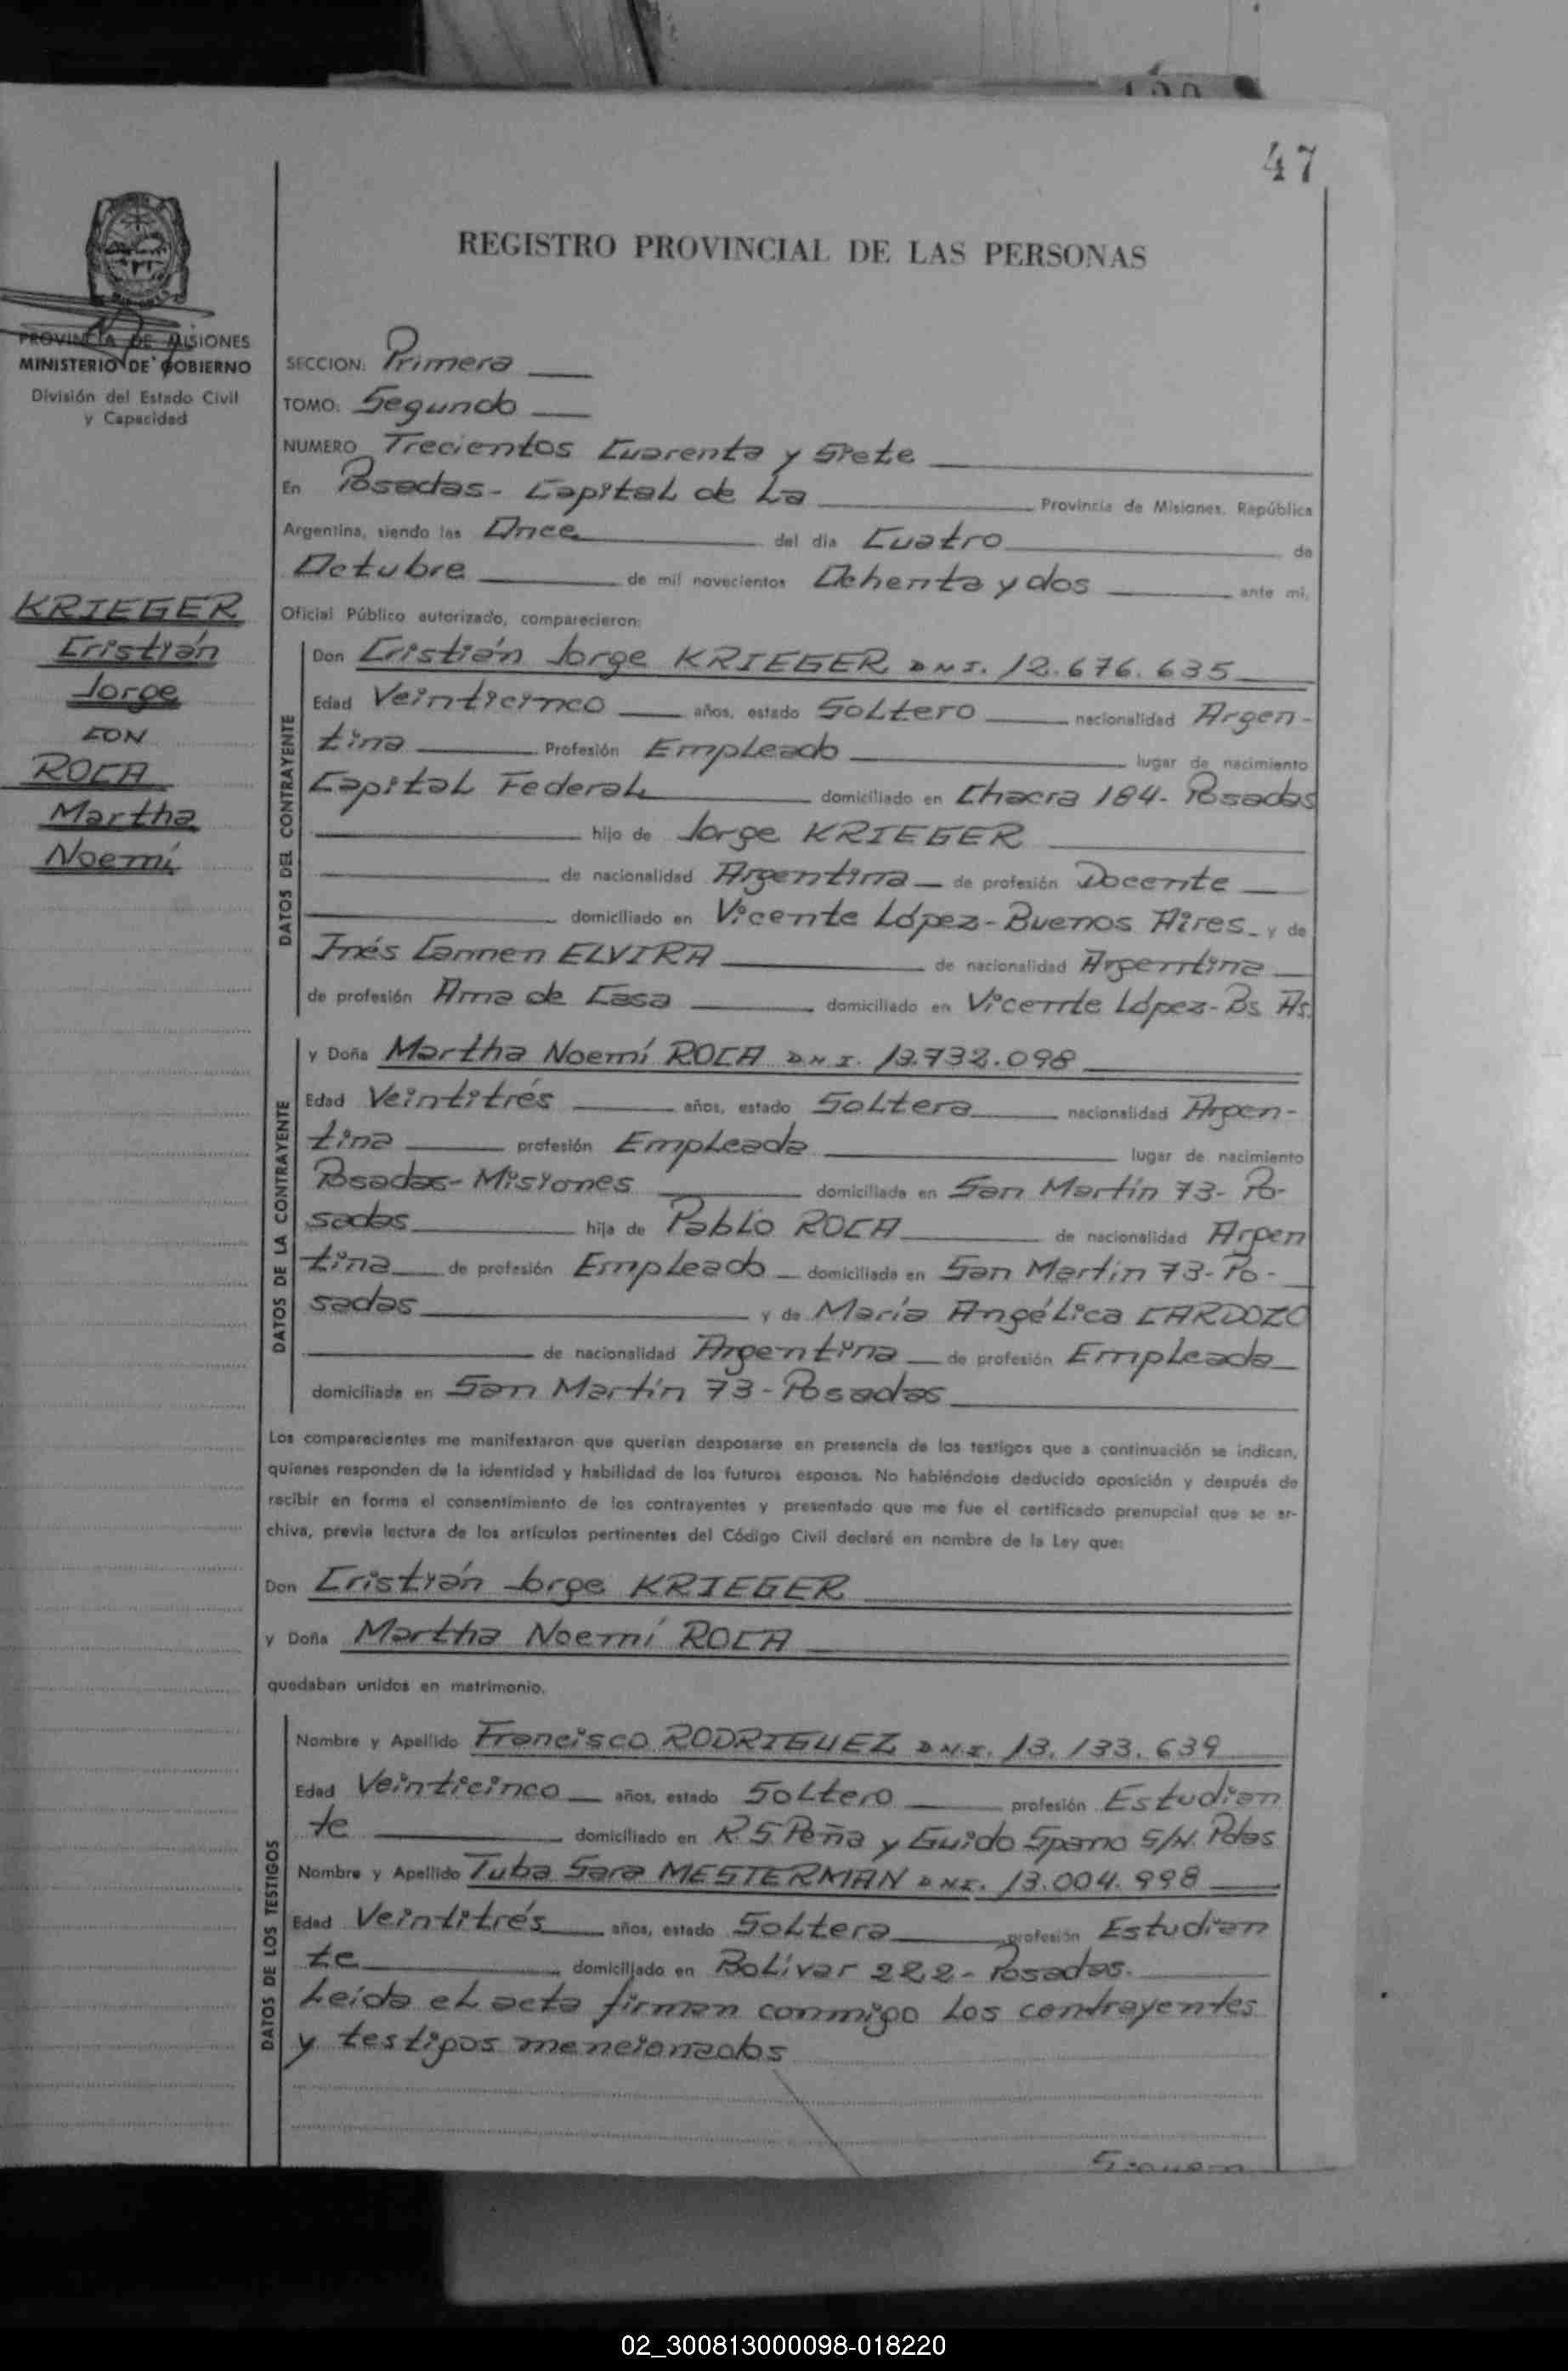 47
REGISTRO PROVINCIAL DE LAS PERSONAS
PROVINCIA DE MISIONES
MINISTERIO DE GOBIERNO
División del Estado Civil
y Capacidad
KRIEGER
Cristián
Jorge
CON
ROCA
Martha
Noemí
SECCION: Primera
TOMO: Segundo
NUMERO Trecientos Cuarenta y Siete
En Posadas - Capital de La Provincia de Misiones, República
Argentina, siendo las Once del día Cuatro de
Octubre de mil novecientos Ochenta y dos ante mi,
Oficial Público autorizado, comparecieron:
DATOS DEL CONTRAYENTE
Don Cristián Jorge KRIEGER D.N.I. 12.676.635
Edad Veinticinco años, estado Soltero nacionalidad Argen-
tina Profesión Empleado lugar de nacimiento
Capital Federal domiciliado en Chacra 184- Posadas
hijo de Jorge KRIEGER
de nacionalidad Argentina de profesión Docente
domiciliado en Vicente López - Buenos Aires y de
Inés Carmen ELVIRA de nacionalidad Argentina
de profesión Ama de Casa domiciliado en Vicente López - Bs As.
DATOS DE LA CONTRAYENTE
y Doña Martha Noemí ROCA D.N.I. 13.732.098
Edad Veintitrés años, estado Soltera nacionalidad Argen-
tina profesión Empleada lugar de nacimiento
Posadas - Misiones domiciliada en San Martín 73- Po-
sadas hija de Pablo ROCA de nacionalidad Argen
tina de profesión Empleado domiciliado en San Martín 73- Po-
sadas y de María Angélica CARDOZO
de nacionalidad Argentina de profesión Empleada
domiciliada en San Martín 73 - Posadas
Los comparecientes me manifestaron que querían desposarse en presencia de los testigos que a continuación se indican,
quienes responden de la identidad y habilidad de los futuros esposos. No habiéndose deducido oposición y después de
recibir en forma el consentimiento de los contrayentes y presentado que me fue el certificado prenupcial que se ar-
chiva, previa lectura de los artículos pertinentes del Código Civil declaré en nombre de la Ley que:
Don Cristián Jorge KRIEGER
y Doña Martha Noemí ROCA
quedaban unidos en matrimonio.
DATOS DE LOS TESTIGOS
Nombre y Apellido Francisco RODRIGUEZ D.N.I. 13.133.639
Edad Veinticinco años, estado Soltero profesión Estudian
te domiciliado en R. S Peña y Guido Spano S/N. Pdas
Nombre y Apellido Tuba Sara MESTERMAN D.N.I. 13.004.998
Edad Veintitrés años, estado Soltera profesión Estudian
te domiciliado en Bolívar 222 - Posadas.
Leída el acta firman conmigo los contrayentes
y testigos mencionados
02_300813000098-018220